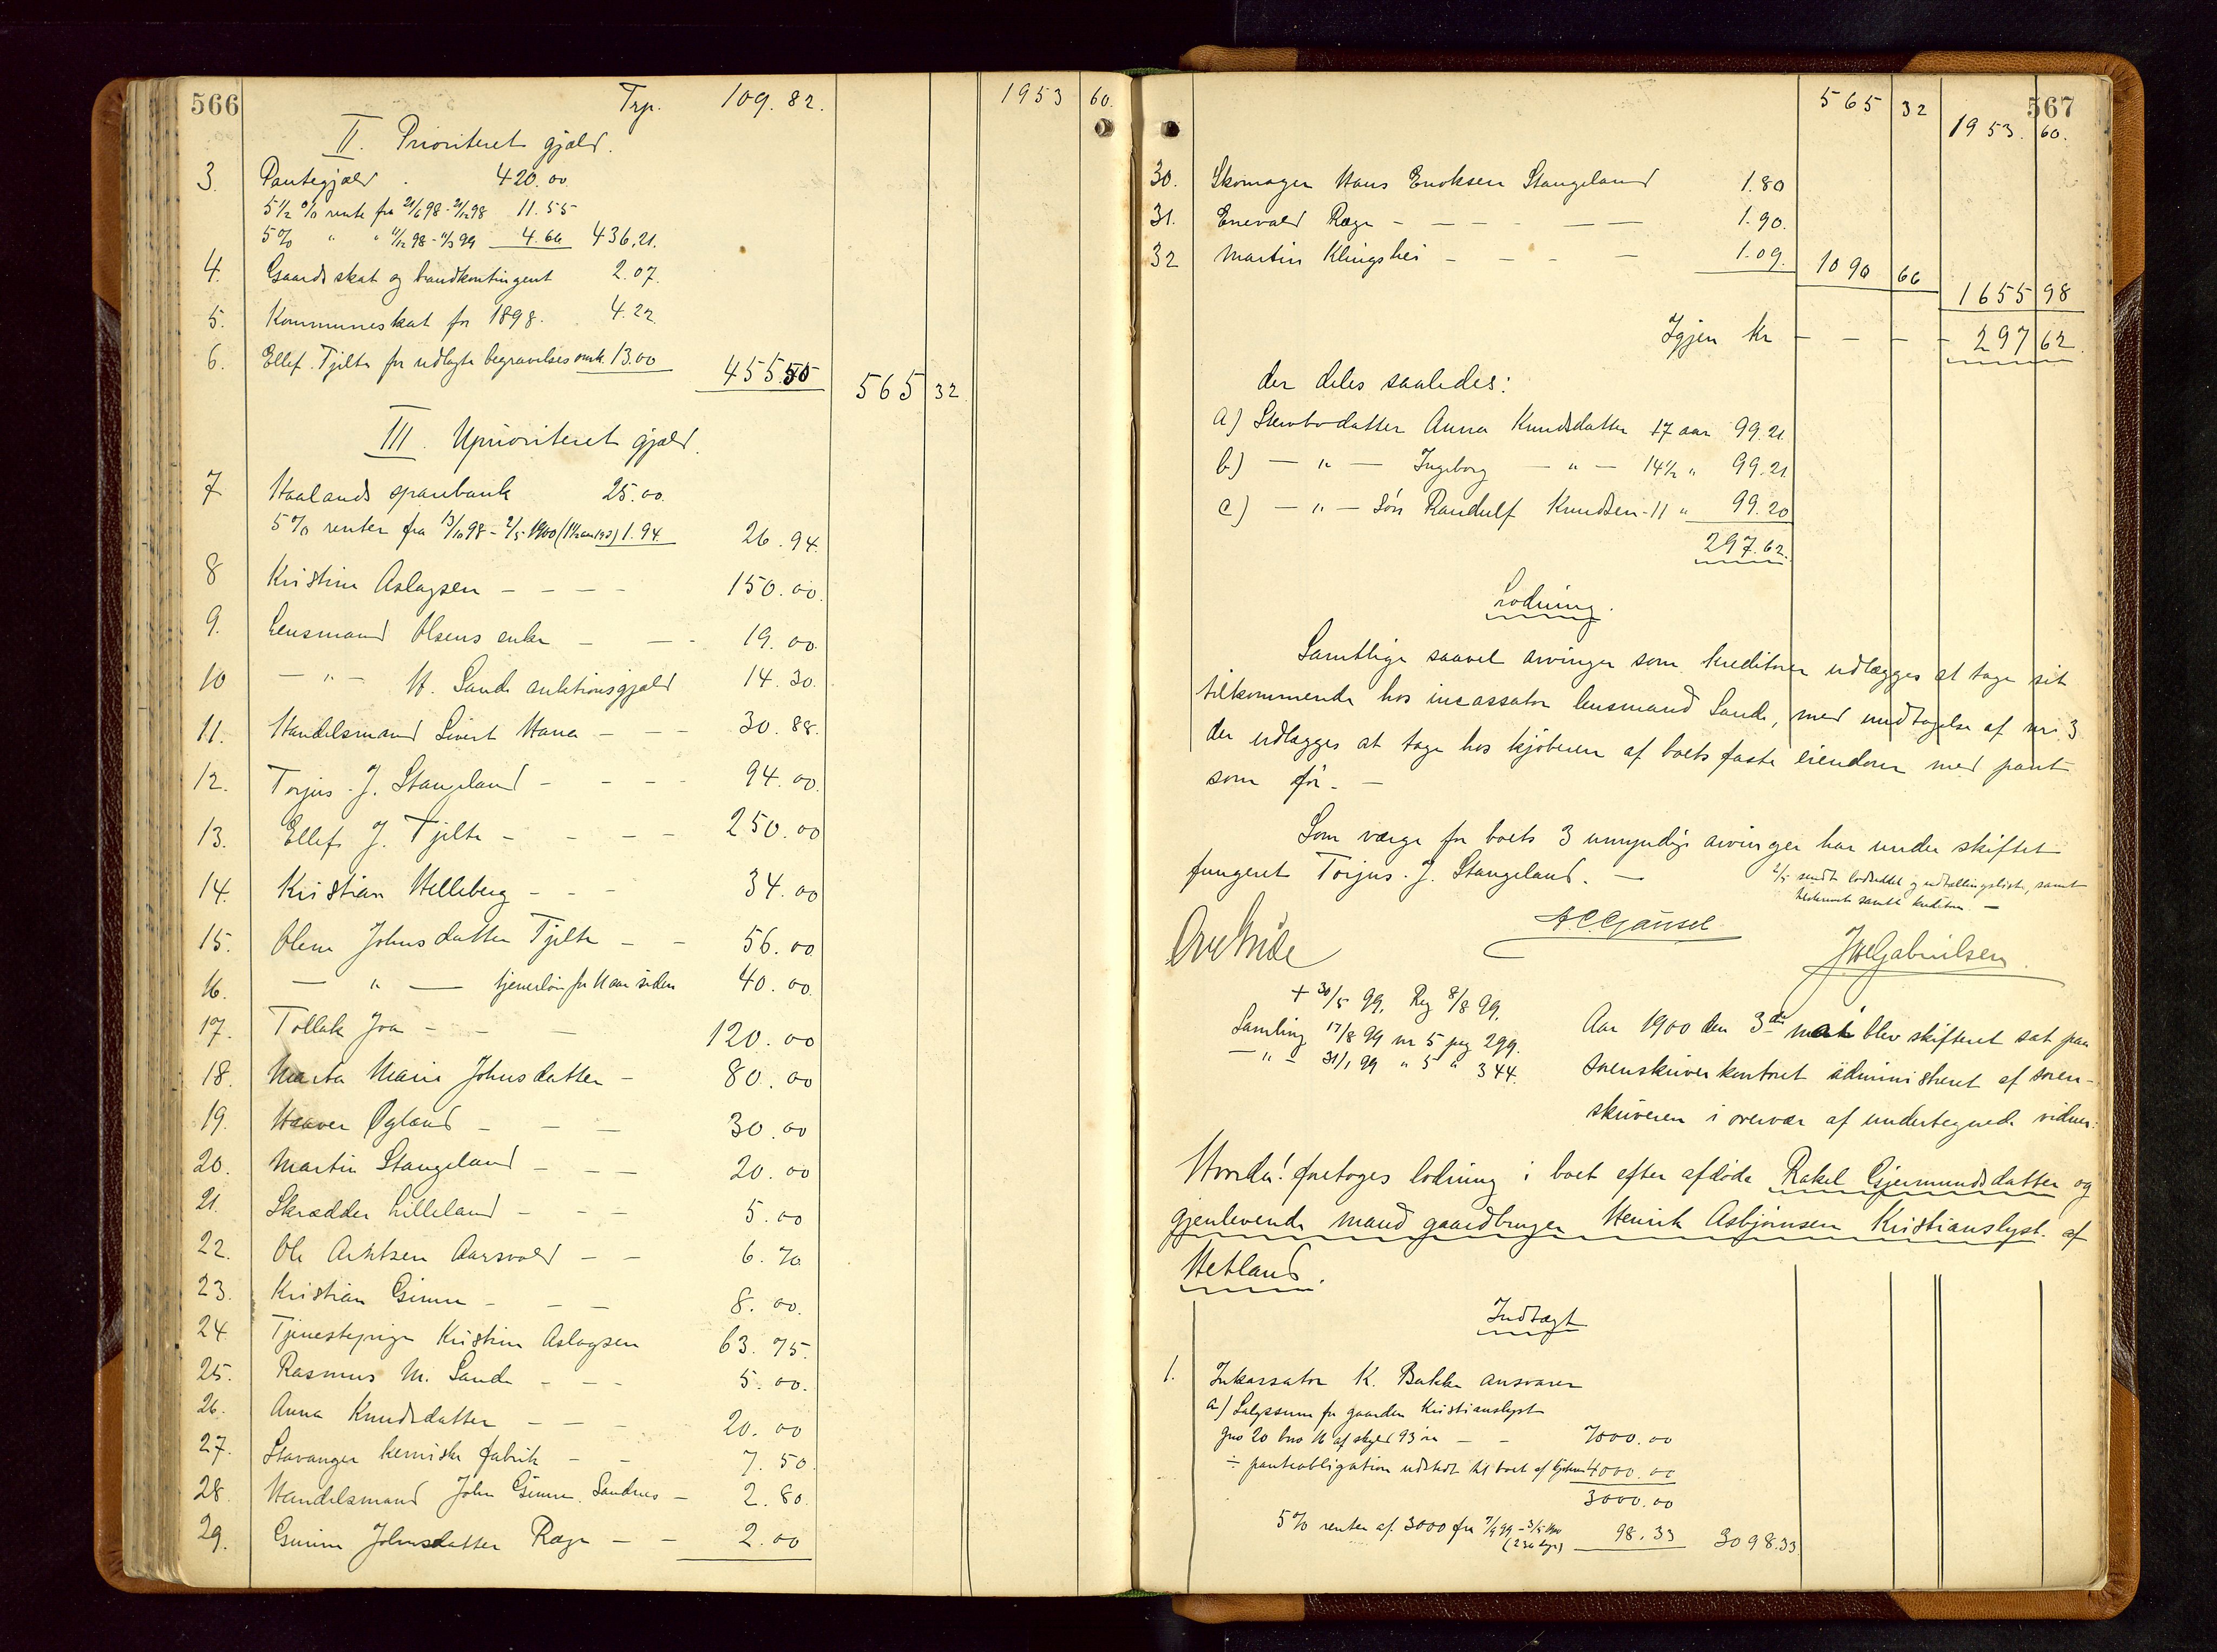 566
Trp. 109.82. 1953 60.
II. Prioriteret gjæld.
3. Pantegjæld . 420.00
5½ % rente fra 21/6 98 - 21/12 98 11.55
5% " " 21/12 98 - 11/3 99 4.66 436.21.
4. Gaardsskat og brandkontingent 2.07.
5. Kommuneskat for 1898. 4.22.
6. Ellef Tjelta for udlagte begravelsesomk. 13.00 455.50 565 32
III. Uprioriteret gjæld.
7 Haalands sparebank 25.00.
5% renter fra 13/10 98 - 2/5 1900 1.94 26.94.
8 Kristine Aslagsen - - - - 150.00.
9. Lensmand Olsens enke - - - 19.00.
10 - " - H. Sande auktionsgjæld 14.30.
11. Handelsmand Sivert Hana - - - 30.88.
12. Torjus J. Stangeland - - - - 94.00.
13. Ellef J. Tjelta - - - - 250.00
14. Kristian Helleberg - - - 34.00
15. Olene Johnsdatter Tjelta - - 56.00
16. - " - tjenerløn for 11 aar siden 40.00.
17. Tollak Joa - - - 120.00
18. Marta Marie Johnsdatter - 80.00
19. Haaver Øgland - - - 30.00
20. Martin Stangeland - - - 20.00
21. Skrædder Lilleland - - - 5.00
22. Ole Aarsvold - - 6.70
23. Kristian Gimre - - - 8.00.
24. Tjenestepige Kristine Aslagsen 63.75.
25. Rasmus M. Sande - - - 5.00.
26. Anna Knudsdatter - - - 20.00
27. Stavanger kemiske fabrik - - 7.50.
28. Handelsmand John Gimre. Sandnes - 2.80.
29. Gurine Johnsdatter Ræge - - 2.00
567
565 32 1953. 60.
30. Skomager Hans Enoksen Stangeland 1.80
31. Enevald Ræge - - - - - - 1.90.
32 Martin Klingshei - - - - 1.09. 1090 66 1655 98
Igjen Kr - - - - 297 62.
der deles saaledes:
a) Stervbodatter Anna Knudsdatter 17 aar 99.21.
b) - " - Ingeborg - " - 14½ " 99.21
c) - " - søn Randulf Knudsen - 11 " 99.20
297.62.
Lodning.
Samtlige saavel arvinger som kreditorer udlægges at tage sit
tilkommende hos incassator lensmand Sande, med undtagelse af nr. 3
der udlægges at tage hos kjøberen af boets faste eiendom med pant
som før. -
Som værge for boets 3 umyndige arvinger har under skiftet
fungeret Torjus J. Stangeland. -
2/5 sendt lodseddel og udtællingsliste, samt
samtl. kreditorer -
A.C.Gjausel
J M Gabrielsen
+ 30/5 99. Reg 8/8 99.
Samling 17/8 99 nr 5 pag 299.
- " - 31/1 99 " 5 " 344.
Aar 1900 den 3die mai blev skifteret sat paa
sorenskriverkontoret administreret af soren-
skriveren i overvær af undertegnede vidner:
Hvorda! foretoges lodning i boet efter afdøde Rakel Gjermundsdatter og
gjenlevende mand gaardbruger Henrik Asbjørnsen Kristianslyst af
Hetland.
Indtægt
1. Inkassator K. Bakke ansvarer
a) Salgssum for gaarden Kristianslyst
gno 20 bno 16 af skyld 93 øre - - 7000.00
÷ panteobligation udstedt til boet af kjøberen 4000.00
3000.00
5% renter af 3000 fra 7/9 99 - 3/5 1900
(236 dage) 98.33 3098.33.